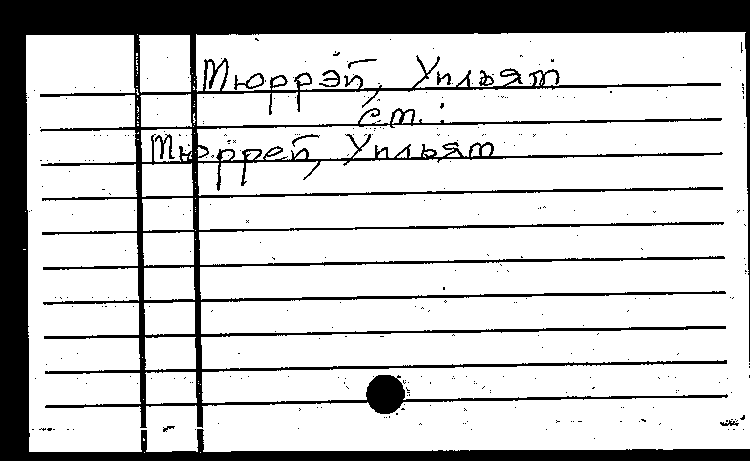 Мюррэй, Уильям
см.:
Мюррей, Уильям